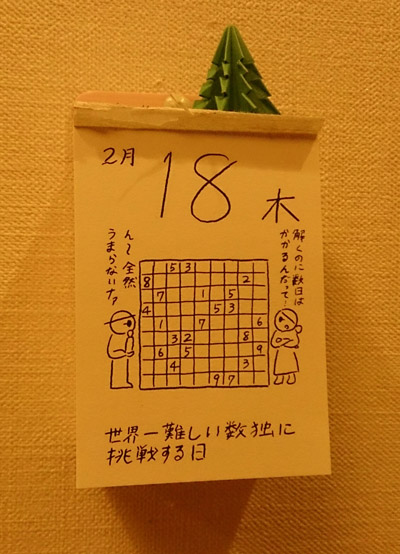 2月
18
木
解くのに数日は
かかるんだって…
ん〜 全然
うまらないナァ
5 3
8 2
7 1 5
4 5 3
1 7 6
3 2 8
6 5 9
4 3
9 7
世界一難しい数独に
挑戦する日